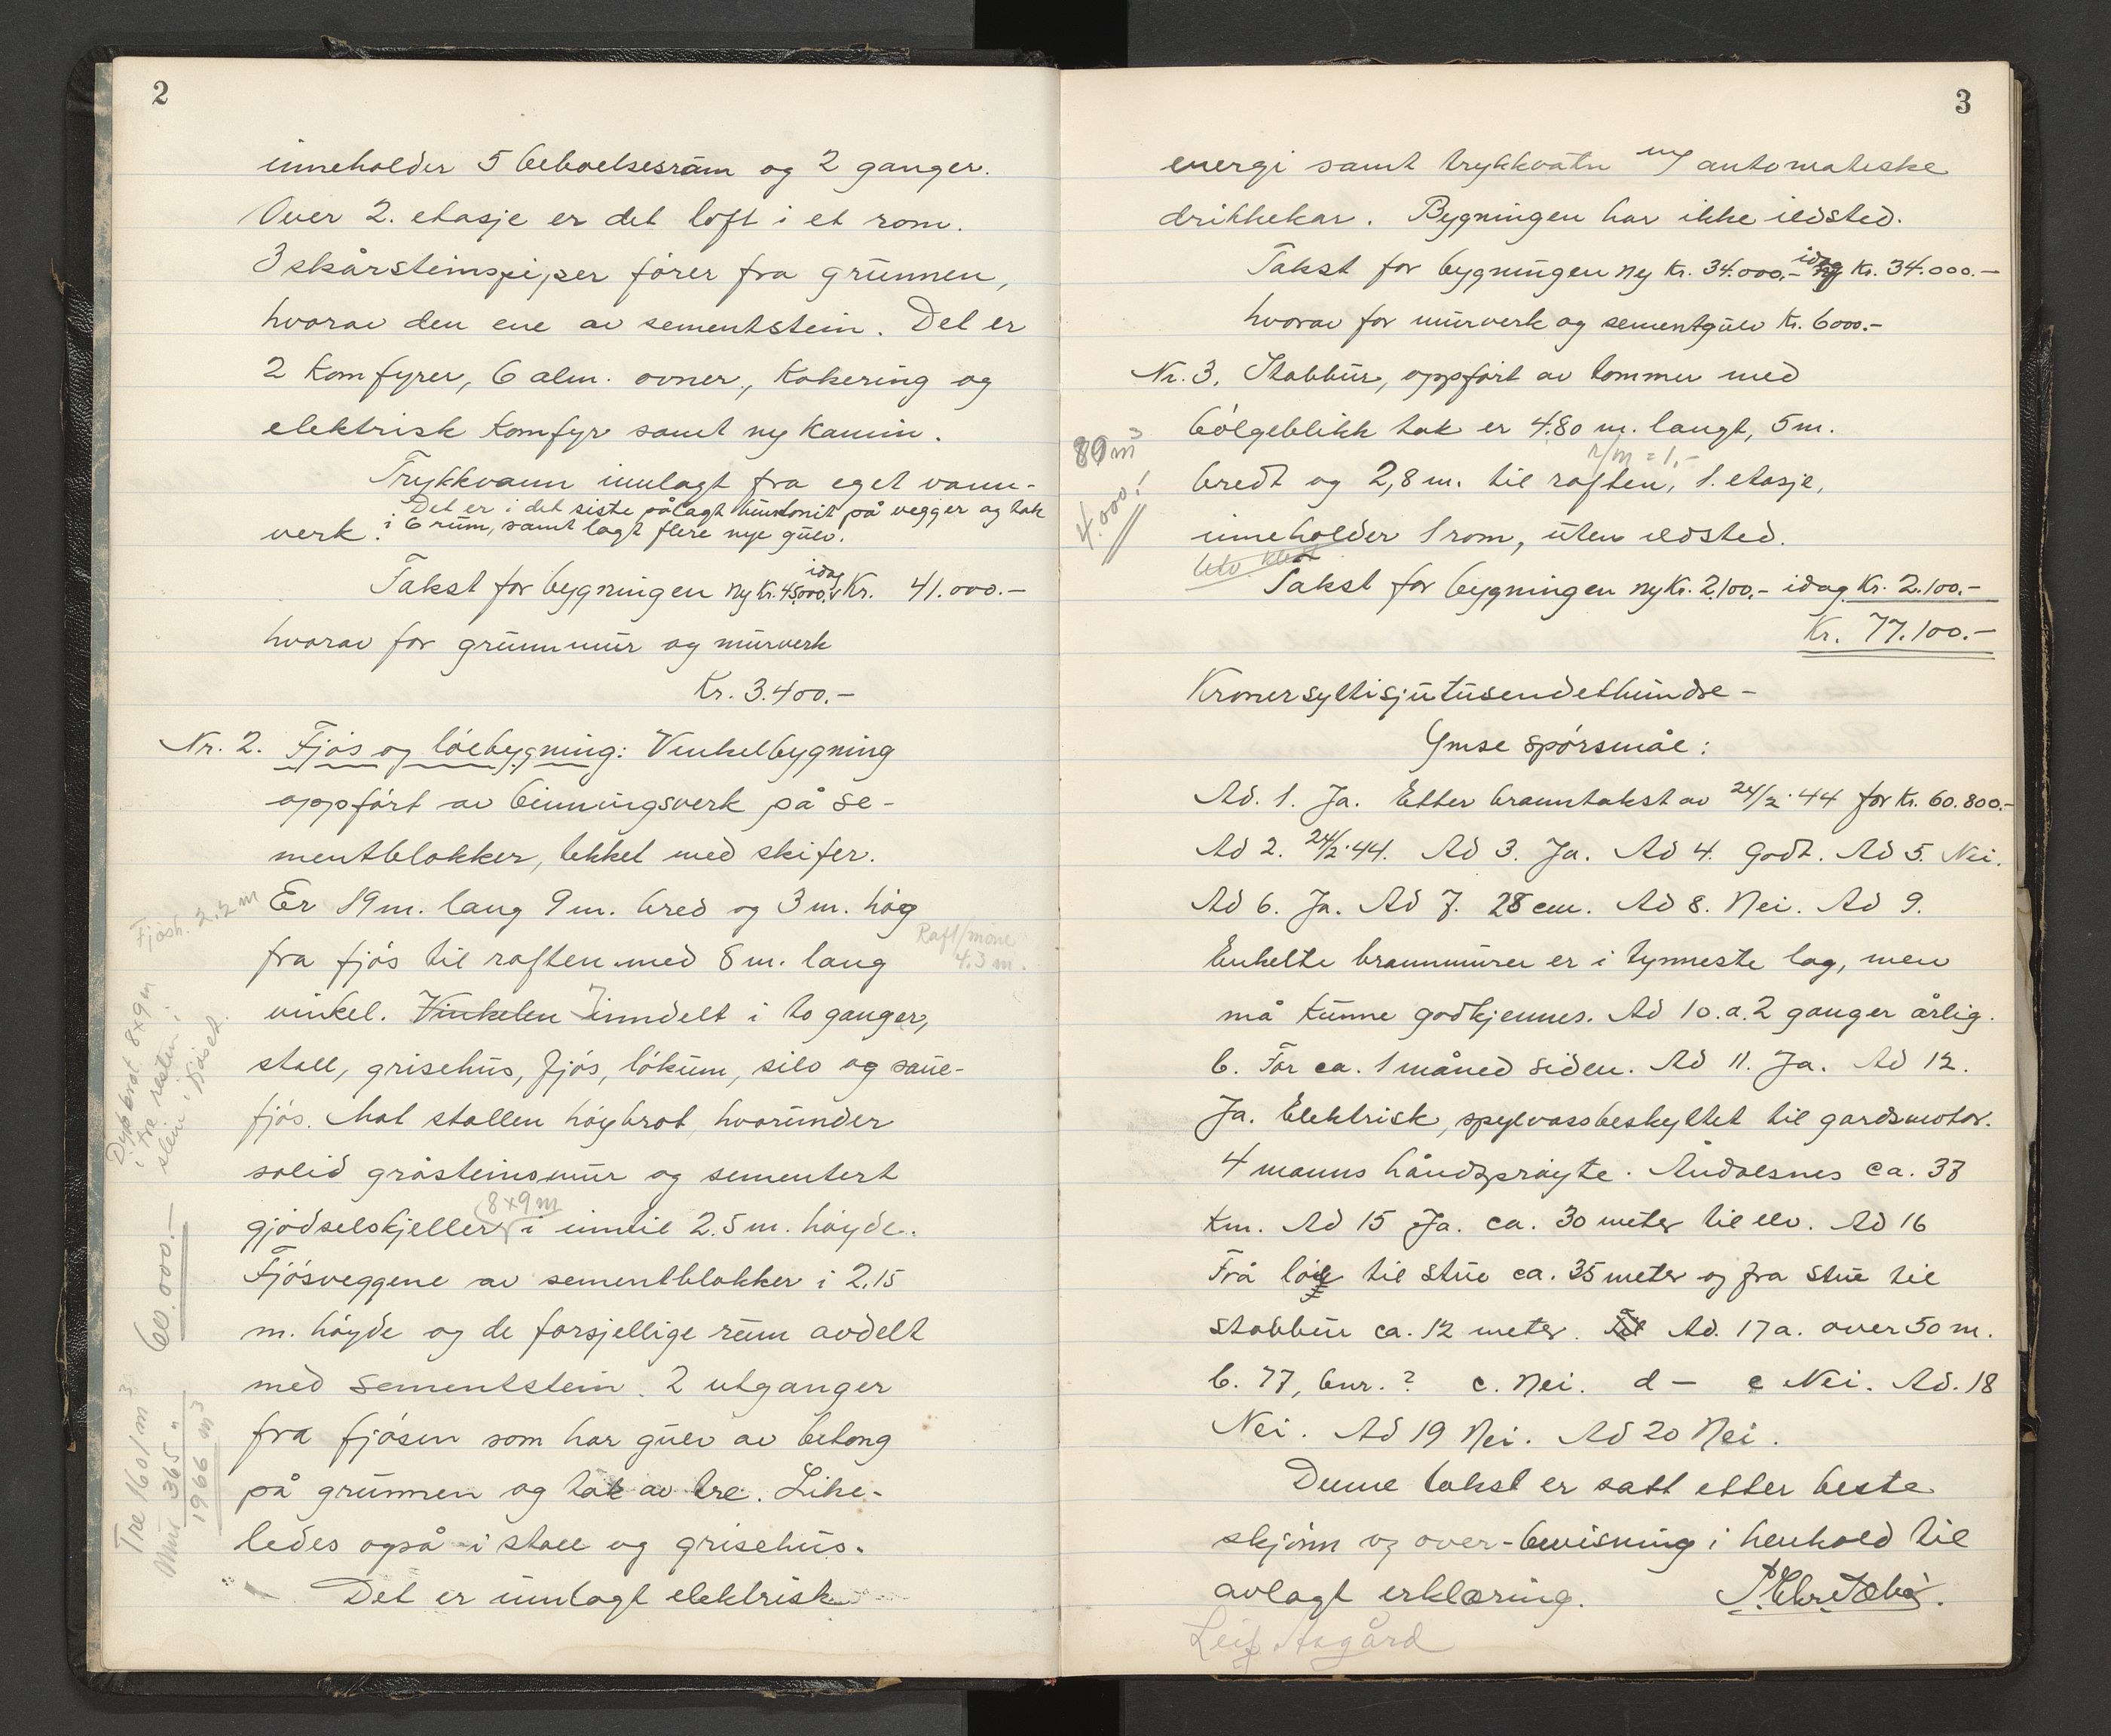 2
inneholder 5 beboelsesrøm og 2 ganger.
Over 2. etasje er det loft i et rom.
3 skårsteinspiper fører fra grunnen,
hvorav den ene av sementstein. Det er
2 komfyrer, 6 alm. ovner, kokering og
elektrisk komfyr samt ny kamin.
Trykkvann innlagt fra eget vann-
Det er i det siste pålagt huntonit på vegger og tak
verk. i 6 rum, samt lagt flere nye gulv.
idag
Takst for bygningen ny kr. 45000.- Kr. 41.000.-
hvorav for grunnmur og murverk
Kr. 3.400.-
Nr. 2. Fjøs og løebygning: Vinkelbygning
oppført av binningsverk på se-
mentblokker, tekket med skifer.
Er 19 m. lang 9 m. bred og 3 m. høg
fra fjøs til raften med 8 m. lang
vinkel. Vinkelen inndelt i to ganger,
stall, grisehus, fjøs, løkum, silo og saue-
fjøs. Mot stallen høybrot, hvorunder
solid gråsteinsmur og sementert
8x9m
gjødselskjeller i inntil 2.5 m. høyde.
Fjøsveggene av sementblokker i 2.15
m. høyde og de forsjellige rum avdelt
med sementstein. 2 utganger
fra fjøsen som har gulv av betong
på grunnen og tak av tre. Like-
ledes også i stall og grisehus.
Det er innlagt elektrisk
Fjøsh. 2.2 m
Raft/møne
4.3 m.
Dypbrot 8x9m
i tre resten i
stein i
60.000.-
Tre 1601 m3
Mur 365 "
1966 m3
3
energi samt trykkvatn m/ automatiske
drikkekar. Bygningen har ikke ildsted.
idag
Takst for bygningen ny kr. 34.000.- ny kr. 34.000.-
hvorav for murverk og sementgulv kr. 6000.-
Nr. 3. Stabbur, oppført av tømmer med
bølgeblikk tak er 4.80 m. langt, 5 m.
r/m = 1,-
bredt og 2,8 m. til raften, 1. etasje,
inneholder 1 rom, uten ildsted.
Takst for bygningen ny kr. 2.100.- idag kr. 2.100.-
Kr. 77.100.-
89 m3
4.000.!
Kronersyttisjutusendethundre-
Ymse spørsmål:
Ad. 1. Ja. Etter branntakst av 24/2.44 for kr. 60.800.-
Ad 2. 24/2.44. Ad 3. Ja. Ad 4. Godt. Ad 5. Nei.
Ad 6. Ja. Ad 7. 28 cm. Ad 8. Nei. Ad 9.
Enkelte brannmurer er i tynneste lag, men
må kunne godkjennes. Ad 10. a. 2 ganger årlig.
b. For ca. 1 måned siden. Ad 11. Ja. Ad 12.
Ja. Elektrisk, spylvassbeskyttet til gardsmotor.
4 manns håndsprøyte. Åndalsnes ca. 38
km. Ad 15 Ja. ca. 30 meter til elv. Ad 16
Frå løe til stue ca. 35 meter og fra stue til
stabbur ca. 12 meter. Ad. 17 a. over 50 m.
b. 77, bnr. ? c. Nei. d - e Nei. Ad. 18
Nei. Ad 19 Nei. Ad 20 Nei.
Denne takst er satt etter beste
skjønn og over-bevisning i henhold til
avlagt erklæring.
Leif Aagård